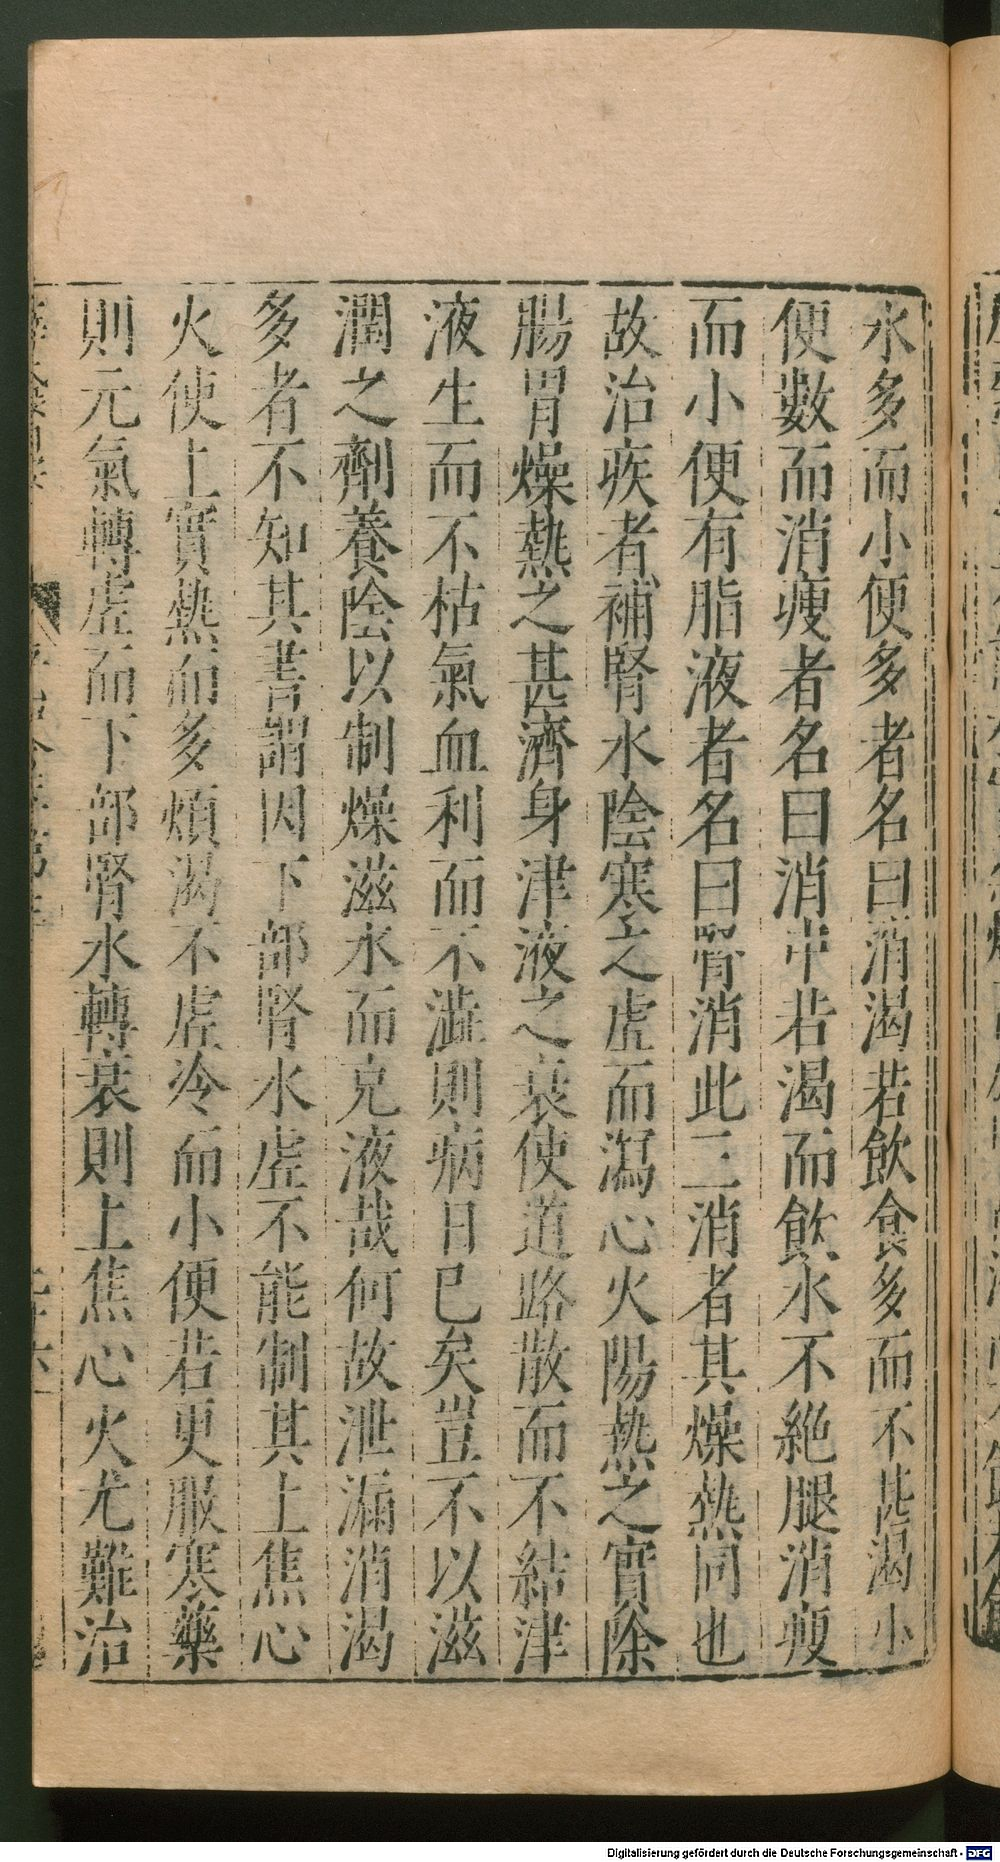 水多而小便多者名曰消渴若飲食多而不甚渴小
便數而消瘦者名曰消中若渴而飲水不絶腿消瘦
而小便有脂液者名曰腎消此三消者其燥熱同也
故治疾者補腎水陰寒之虛而瀉心火陽熱之實除
腸胃燥熱之甚濟身津液之衰使道路散而不結津
液生而不枯氣血利而不澁則病日已矣豈不以滋
潤之劑養陰以制燥滋水而充液哉何故泄漏消渴
多者不知其書謂因下部腎水虛不能制其上焦心
火使上實熱而多煩渴不虛冷而小便若更服寒藥
則元氣轉虛而下部腎水轉衰則上焦心火尤難治
Digitalisierung gefördert durch die Deutsche Forschungsgemeinschaft - DFG